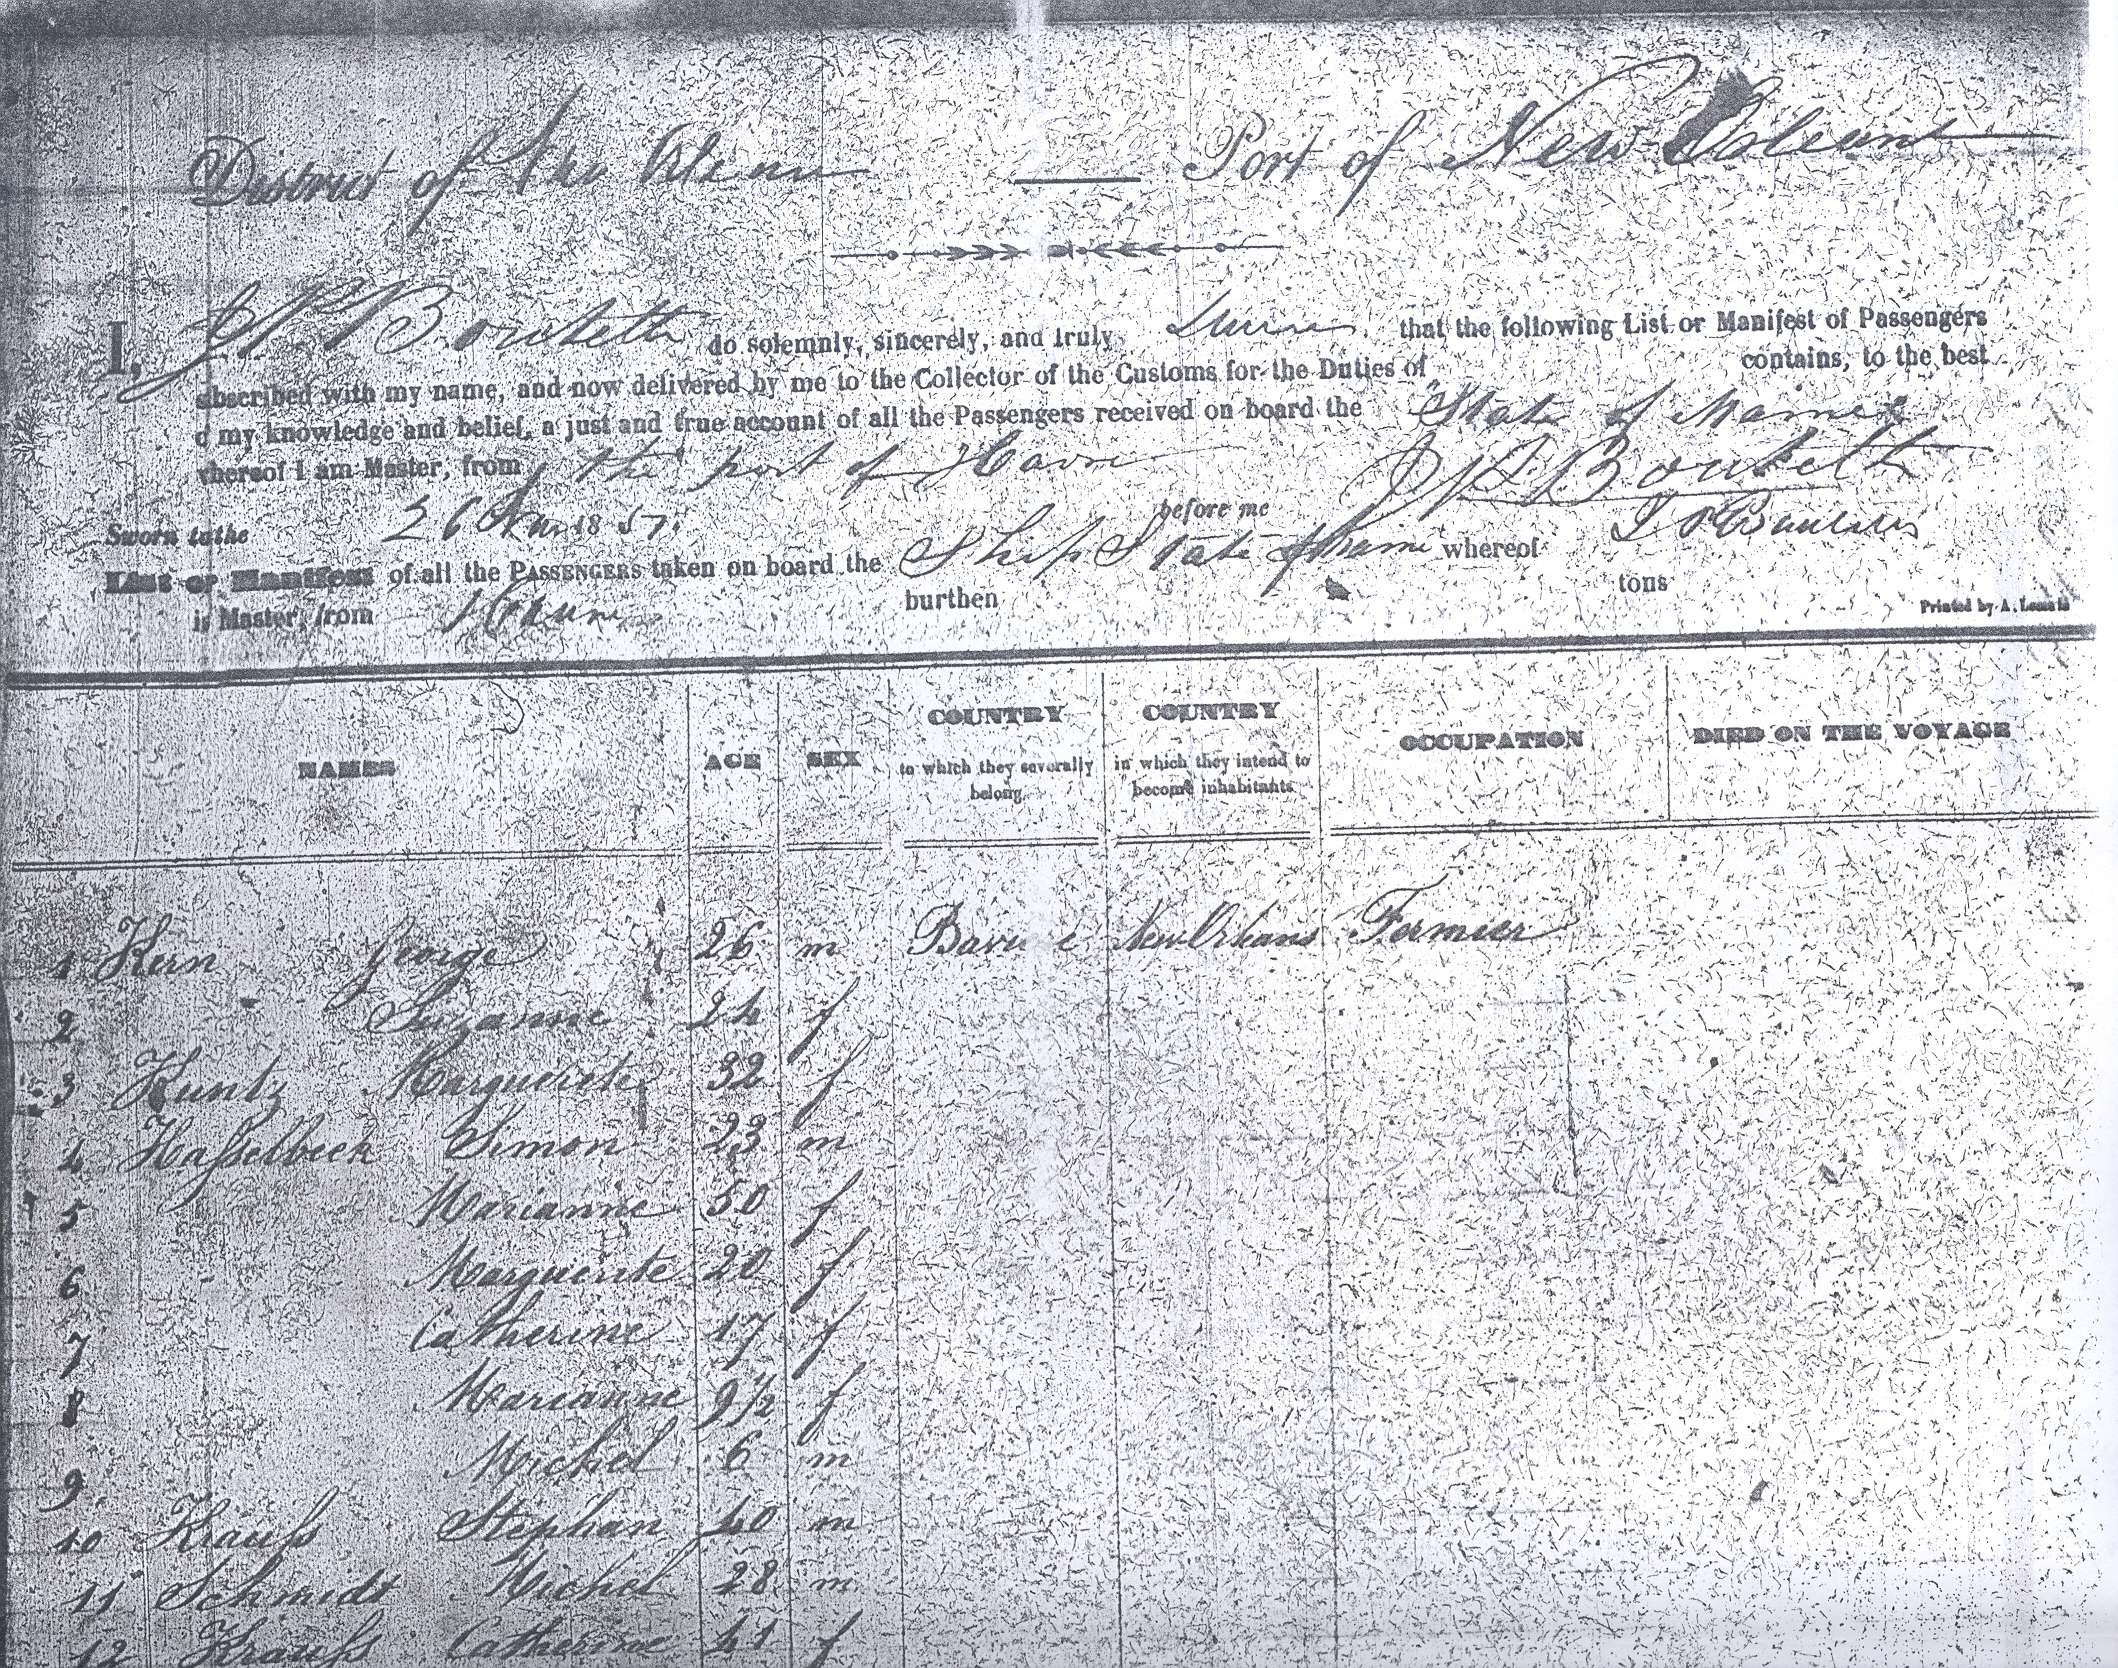 District of New Orleans — Port of New Orleans
I, do solemnly, sincerely, and truly that the following List or Manifest of Passengers
ubscribed with my name, and now delivered by me to the Collector of the Customs for the Duties of contains, to the best
f my knowledge and belief, a just and true account of all the Passengers received on board the State of Maine
whereof I am Master, from the port of Havre
Sworn to the 26 18 before me
List or Manifest of all the PASSENGERS taken on board the Ship State of Maine whereof
is Master, from burthen tons
Printed by A.
NAMES AGE SEX COUNTRY to which they severally belong. COUNTRY in which they intend to become inhabitants. OCCUPATION DIED ON THE VOYAGE
1 Kern George 26 m New Orleans Farmer
2 Suzanne 24 f
3 Kuntz Marguerite 32 f
4 Hasselbeck Simon 23 m
5 Marianne 50 f
6 Marguerite 20 f
7 Catherine 17 f
8 Marianne 9 1/2 f
9 Michel 6 m
10 Krauß Stephan 40 m
11 Schmidt Michel 28 m
12 Krauß Catherine 41 f